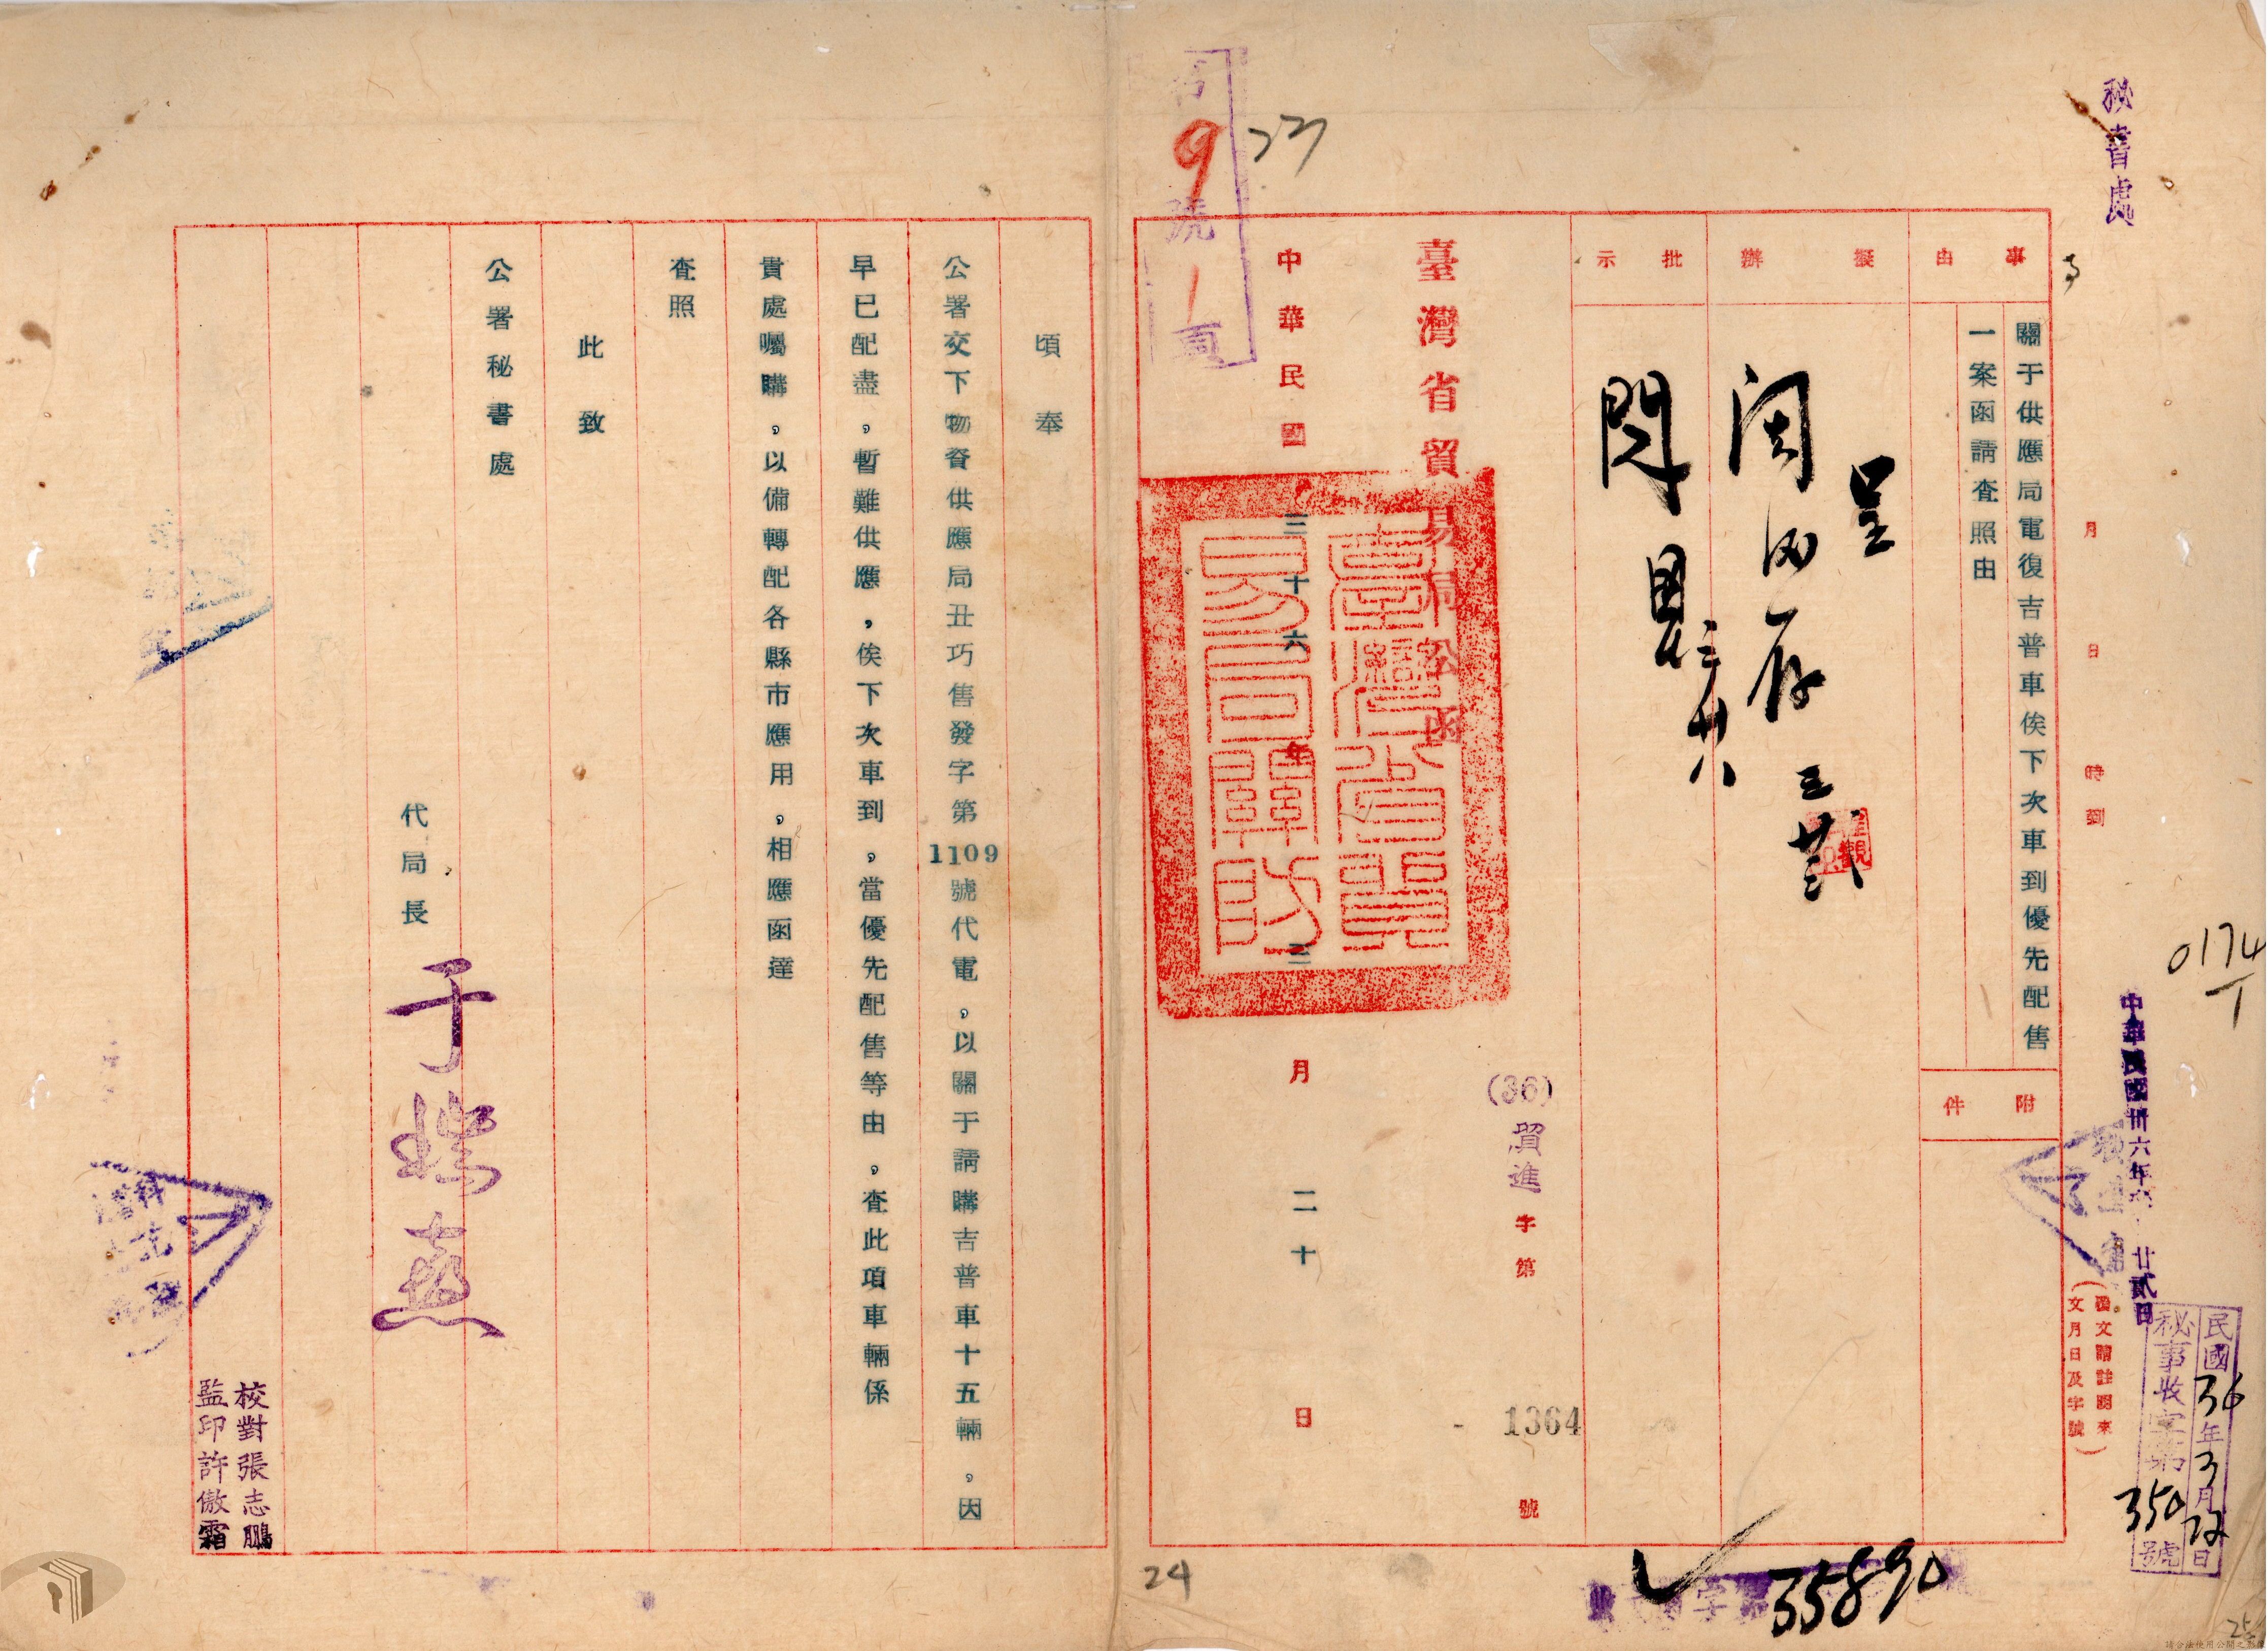 秘書處
中華民國卅六年 廿貳日
民國36年3月22日
秘事收字第350號
0174
1
月 日 時到
(覆文請註明來文月日及字號)
事由
關于供應局電復吉普車俟下次車到優先配售
一案函請查照由
附件
擬辦
呈
閱後存
三 廿二
批示
閱
三 廿八
臺灣省貿易局公函
(36)貿進字第1364號
臺灣省貿易局關防
中華民國三十六年三月二十日
9號1頁
23
24
35890
頃奉
公署交下物資供應局丑巧售發字第1109號代電,以關于請購吉普車十五輛,因
早已配盡,暫難供應,俟下次車到,當優先配售等由,查此項車輛係
貴處囑購,以備轉配各縣市應用,相應函達
查照
此致
公署秘書處
代局長 于瑞熹
校對張志鵬
監印許傲霜
請合法使用公開之影像